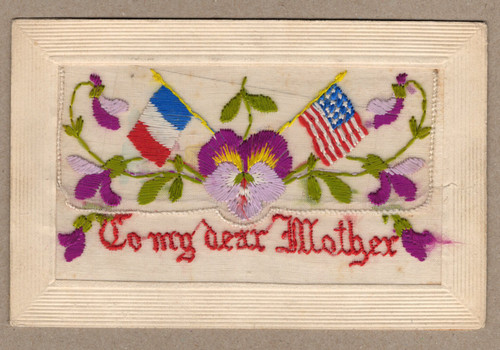 To my dear Mother